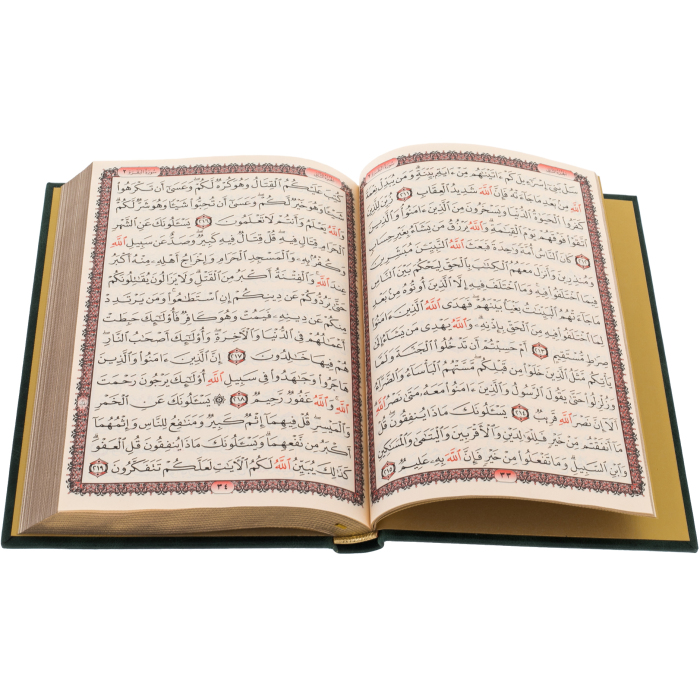 سَلْ بَنِىٓ إِسْرَٰٓءِيلَ كَمْ ءَاتَيْنَٰهُم مِّنْ ءَايَةٍۭ بَيِّنَةٍۗ وَمَن يُبَدِّلْ نِعْمَةَ
ٱللَّهِ مِنۢ بَعْدِ مَا جَآءَتْهُ فَإِنَّ ٱللَّهَ شَدِيدُ ٱلْعِقَابِ ٢١١ زُيِّنَ لِلَّذِينَ
كَفَرُوا۟ ٱلْحَيَوٰةُ ٱلدُّنْيَا وَيَسْخَرُونَ مِنَ ٱلَّذِينَ ءَامَنُوا۟ۘ وَٱلَّذِينَ
ٱتَّقَوْا۟ فَوْقَهُمْ يَوْمَ ٱلْقِيَٰمَةِۗ وَٱللَّهُ يَرْزُقُ مَن يَشَآءُ بِغَيْرِ حِسَابٍ
٢١٢ كَانَ ٱلنَّاسُ أُمَّةً وَٰحِدَةً فَبَعَثَ ٱللَّهُ ٱلنَّبِيِّـۧنَ مُبَشِّرِينَ
وَمُنذِرِينَ وَأَنزَلَ مَعَهُمُ ٱلْكِتَٰبَ بِٱلْحَقِّ لِيَحْكُمَ بَيْنَ ٱلنَّاسِ
فِيمَا ٱخْتَلَفُوا۟ فِيهِۚ وَمَا ٱخْتَلَفَ فِيهِ إِلَّا ٱلَّذِينَ أُوتُوهُ مِنۢ بَعْدِ
مَا جَآءَتْهُمُ ٱلْبَيِّنَٰتُ بَغْيًۢا بَيْنَهُمْۖ فَهَدَى ٱللَّهُ ٱلَّذِينَ ءَامَنُوا۟
لِمَا ٱخْتَلَفُوا۟ فِيهِ مِنَ ٱلْحَقِّ بِإِذْنِهِۦۗ وَٱللَّهُ يَهْدِى مَن يَشَآءُ إِلَىٰ
صِرَٰطٍ مُّسْتَقِيمٍ ٢١٣ أَمْ حَسِبْتُمْ أَن تَدْخُلُوا۟ ٱلْجَنَّةَ وَلَمَّا
يَأْتِكُم مَّثَلُ ٱلَّذِينَ خَلَوْا۟ مِن قَبْلِكُمۖ مَّسَّتْهُمُ ٱلْبَأْسَآءُ وَٱلضَّرَّآءُ
وَزُلْزِلُوا۟ حَتَّىٰ يَقُولَ ٱلرَّسُولُ وَٱلَّذِينَ ءَامَنُوا۟ مَعَهُۥ مَتَىٰ نَصْرُ ٱللَّهِۗ
أَلَآ إِنَّ نَصْرَ ٱللَّهِ قَرِيبٌ ٢١٤ يَسْـَٔلُونَكَ مَاذَا يُنفِقُونَۖ قُلْ
مَآ أَنفَقْتُم مِّنْ خَيْرٍ فَلِلْوَٰلِدَيْنِ وَٱلْأَقْرَبِينَ وَٱلْيَتَٰمَىٰ وَٱلْمَسَٰكِينِ
وَٱبْنِ ٱلسَّبِيلِۗ وَمَا تَفْعَلُوا۟ مِنْ خَيْرٍ فَإِنَّ ٱللَّهَ بِهِۦ عَلِيمٌ ٢١٥
٣٣
كُتِبَ عَلَيْكُمُ ٱلْقِتَالُ وَهُوَ كُرْهٌ لَّكُمْۖ وَعَسَىٰٓ أَن تَكْرَهُوا۟
شَيْـًٔا وَهُوَ خَيْرٌ لَّكُمْۖ وَعَسَىٰٓ أَن تُحِبُّوا۟ شَيْـًٔا وَهُوَ شَرٌّ لَّكُمْۗ
وَٱللَّهُ يَعْلَمُ وَأَنتُمْ لَا تَعْلَمُونَ ٢١٦ يَسْـَٔلُونَكَ عَنِ ٱلشَّهْرِ
ٱلْحَرَامِ قِتَالٍ فِيهِۖ قُلْ قِتَالٌ فِيهِ كَبِيرٌۖ وَصَدٌّ عَن سَبِيلِ ٱللَّهِ
وَكُفْرٌۢ بِهِۦ وَٱلْمَسْجِدِ ٱلْحَرَامِ وَإِخْرَاجُ أَهْلِهِۦ مِنْهُ أَكْبَرُ
عِندَ ٱللَّهِۚ وَٱلْفِتْنَةُ أَكْبَرُ مِنَ ٱلْقَتْلِۗ وَلَا يَزَالُونَ يُقَٰتِلُونَكُمْ
حَتَّىٰ يَرُدُّوكُمْ عَن دِينِكُمْ إِنِ ٱسْتَطَٰعُوا۟ۚ وَمَن يَرْتَدِدْ
مِنكُمْ عَن دِينِهِۦ فَيَمُتْ وَهُوَ كَافِرٌ فَأُو۟لَٰٓئِكَ حَبِطَتْ
أَعْمَٰلُهُمْ فِى ٱلدُّنْيَا وَٱلْـَٔاخِرَةِۖ وَأُو۟لَٰٓئِكَ أَصْحَٰبُ ٱلنَّارِۖ
هُمْ فِيهَا خَٰلِدُونَ ٢١٧ إِنَّ ٱلَّذِينَ ءَامَنُوا۟ وَٱلَّذِينَ
هَاجَرُوا۟ وَجَٰهَدُوا۟ فِى سَبِيلِ ٱللَّهِ أُو۟لَٰٓئِكَ يَرْجُونَ رَحْمَتَ
ٱللَّهِۚ وَٱللَّهُ غَفُورٌ رَّحِيمٌ ٢١٨ ۞ يَسْـَٔلُونَكَ عَنِ ٱلْخَمْرِ
وَٱلْمَيْسِرِۖ قُلْ فِيهِمَآ إِثْمٌ كَبِيرٌ وَمَنَٰفِعُ لِلنَّاسِ وَإِثْمُهُمَآ
أَكْبَرُ مِن نَّفْعِهِمَاۗ وَيَسْـَٔلُونَكَ مَاذَا يُنفِقُونَ قُلِ ٱلْعَفْوَۗ
كَذَٰلِكَ يُبَيِّنُ ٱللَّهُ لَكُمُ ٱلْـَٔايَٰتِ لَعَلَّكُمْ تَتَفَكَّرُونَ ٢١٩
٣٤